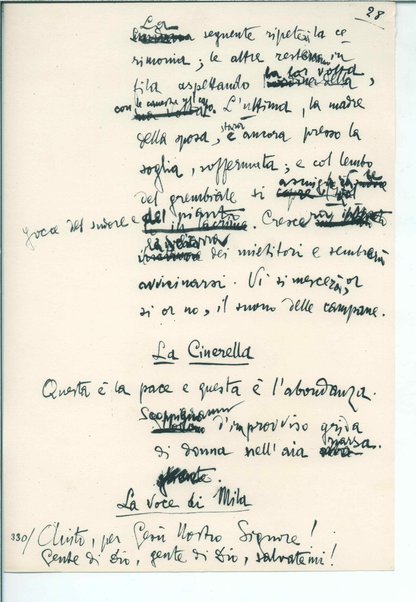 28
La
seguente ripeterà la ce-
rimonia; le altre resteranno in
fila aspettando la lor volta,
con le canestre
L'ultima, la madre
della sposa, starà ancora presso la
soglia, soffermata; e col lembo
del grembiule si
gocce del sudore e del pianto. Cresce
dei mietitori e sembrerà
avvicinarsi. Vi si mescerà, or
sì or no, il suono delle campane.
La Cinerella
Questa è la pace e questa è l'abondanza.
Scoppiano d'improvviso grida
di donna nell'aia
La voce di Mila
330/ Aiuto, per Gesù Nostro Signore!
Gente di Dio, gente di Dio, salvatemi!